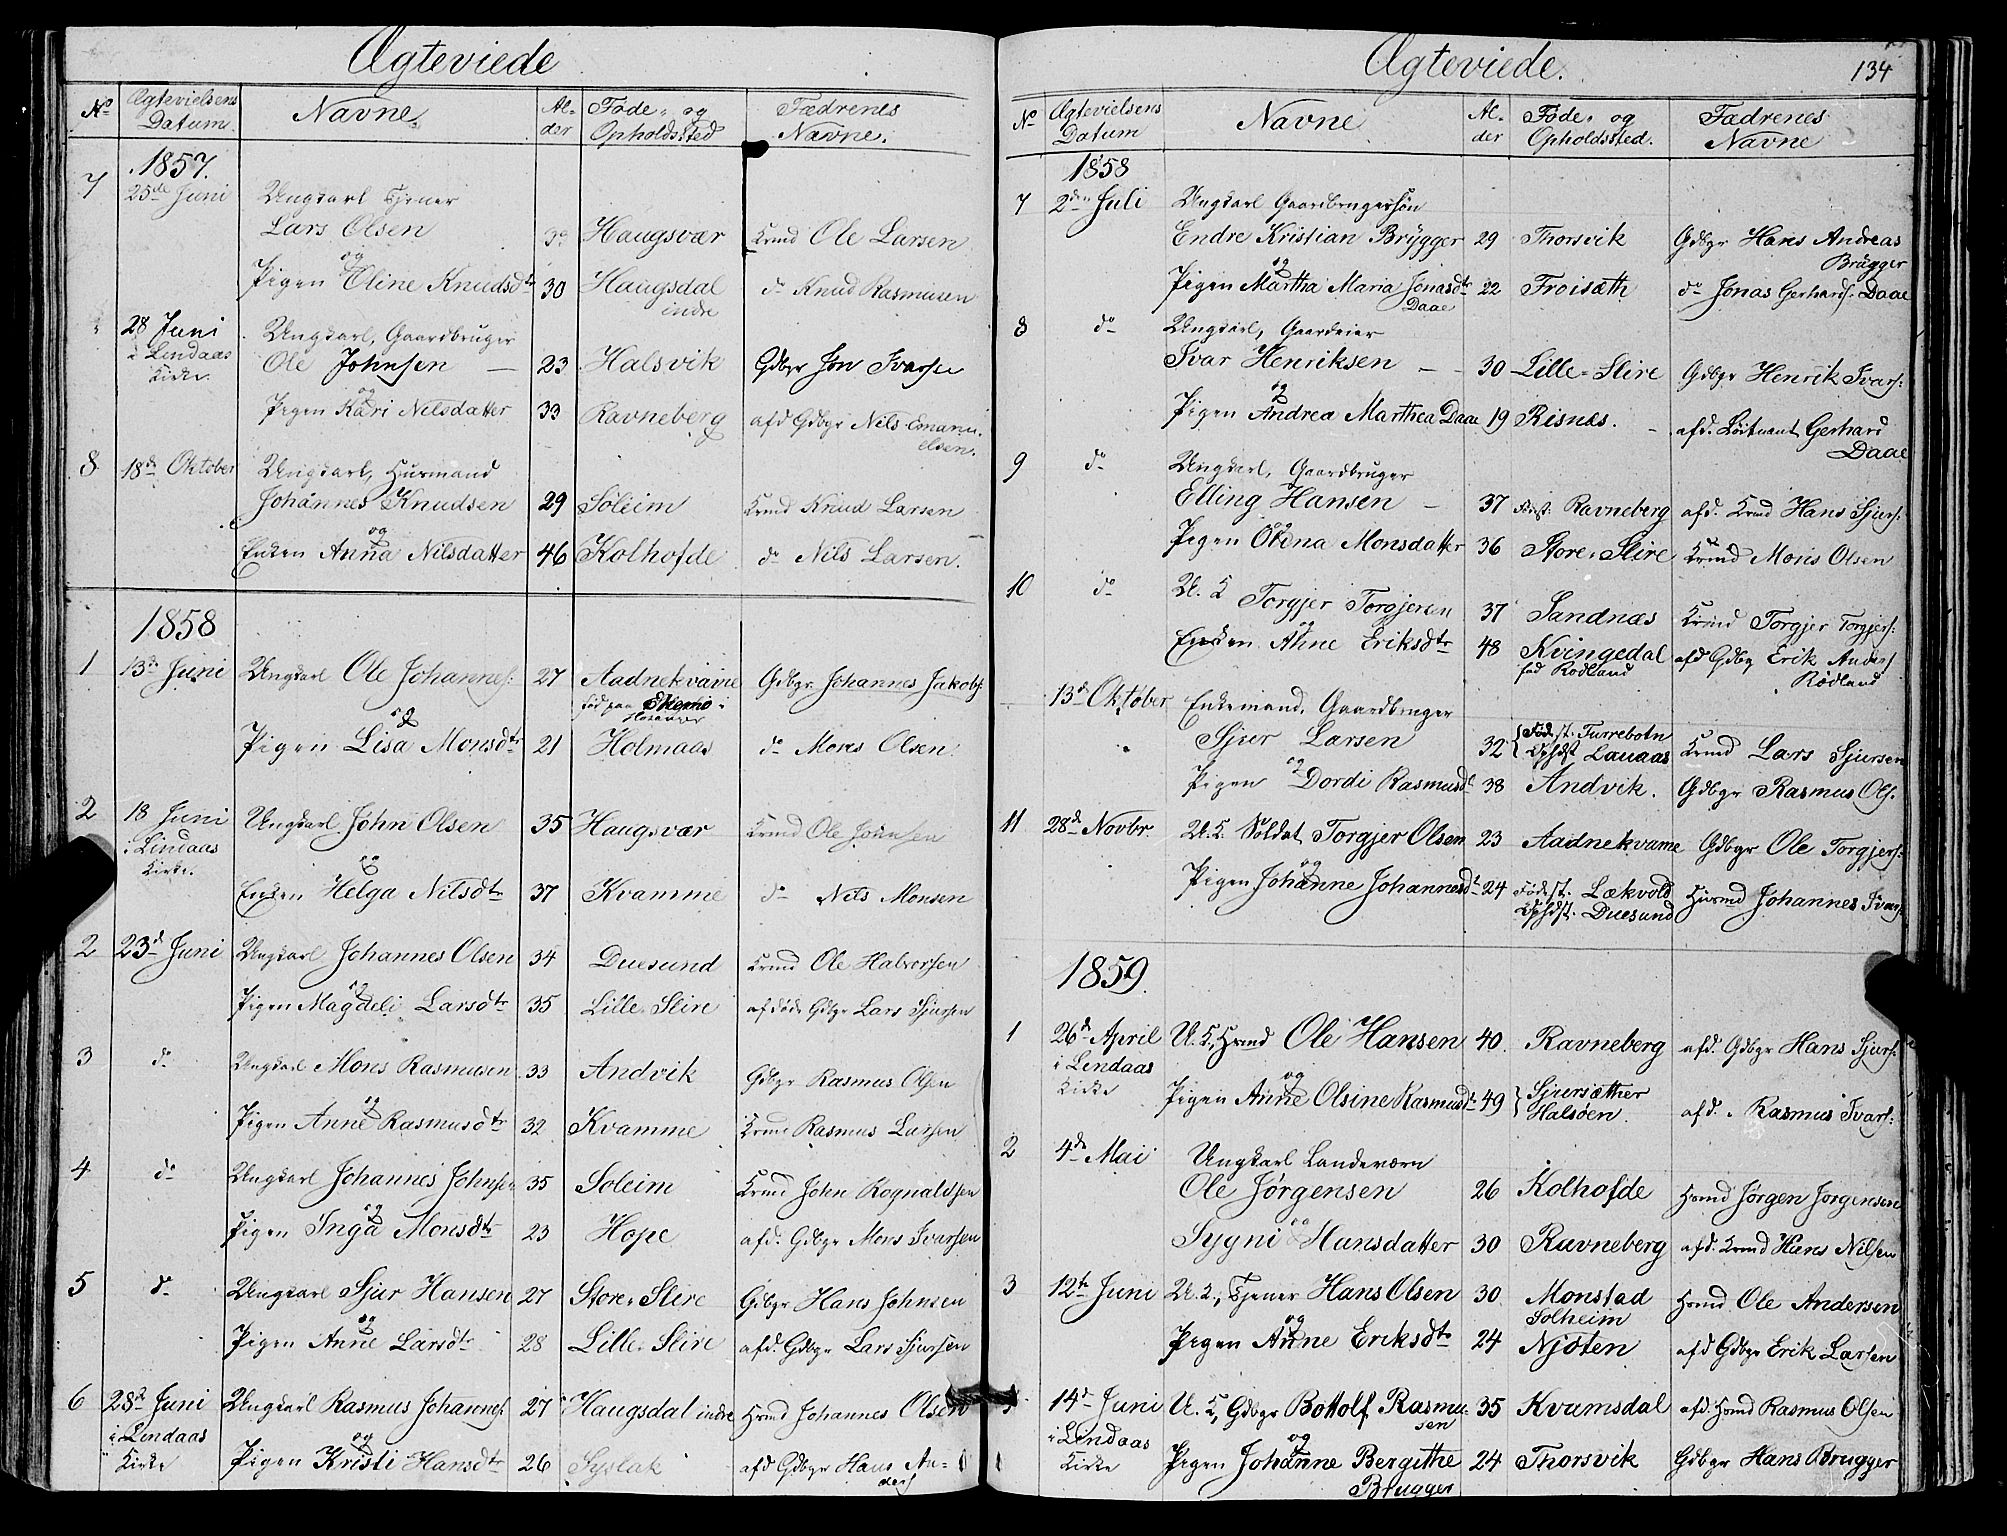 Ægteviede
No Ægtevielsens Datum. Navne. Alder Føde- og Opholdssted Fædrenes Navne.
1857.
7 25de Juni Ungkarl Tjener
Lars Olsen Haugsvær Hmd Ole Larsen
og
Pigen Eline Knudsdtr 30 Haugsdal do Knud Rasmusen
indre
28 Juni Ungkarl, Gaardbruger
i Lindaas Ole Johnsen — 23 Halsvik Gdbgr Jon Ivarsen
Kirke. og
Pigen Kari Nilsdatter 33 Ravneberg afd Gdbgr Nils Emanu-
elsen.
8 18de Oktober Ungkarl, Husmand
Johannes Knudsen 29 Soleim Hmd Knud Larsen
og
Enken Anna Nilsdatter 46 Kolhofde do Nils Larsen.
1858
1 13de Juni Ungkarl Ole Johannes: 27 Aadnekvame Gdbgr Johannes Jakobs:
og
Pigen Lisa Monsdtr 21 Holmaas do Mons Olsen
2 18 Juni Ungkarl John Olsen 35 Haugsvær Hmd Ole Johnsen
i Lindaas
Kirke. og
Enken Helga Nilsdtr 37 Kvamme do Nils Monsen
2 23d Juni Ungkarl Johannes Olsen 34 Duesund Hmd Ole Halvorsen
og
Pigen Magdeli Larsdtr 35 Lille-Slire afdøde Gdbgr Lars Sjursen
3 do Ungkarl Mons Rasmusen 33 Andvik Gdbgr Rasmus Olsen
og
Pigen Anne Rasmusdtr 32 Kvamme Hmd Rasmus Larsen
4 do Ungkarl Johannes Johnsen 35 Soleim Hmd John Rognaldsen
og
Pigen Inga Monsdtr 23 Hope afd. Gdbgr Mons Ivarsen
5 do Ungkarl Sjur Hansen 27 Store-Slire Gdbgr Hans Johnsen
og
Pigen Anne Larsdtr 28 Lille-Slire afd. Gdbgr Lars Sjursen
6 28de Juni Ungkarl Rasmus Johannes: 27 Haugsdal indre Hmd Johannes Olsen
i Lindaas og
Kirke Pigen Kristi Hansdtr 26 Syslak afd Gdbgr Hans An-
ders
Ægteviede. 134
No Ægtevielsens Datum Navne Alder Føde- og Opholdssted. Fædrenes Navne
1858
7 2den Juli Ungkarl Gaardbrugersøn
Endre Kristian Brügger 29 Thorsvik Gdbgr Hans Andreas
Brügger
og
Pigen Martha Maria Jonasdtr 22 Froisæth do Jonas Gerhards: Daae
Daae
8 do Ungkarl, Gaardeier
Ivar Henriksen — 30 Lille-Slire Gdbgr Henrik Ivars:
og
Pigen Andrea Marthea Daae 19 Risnæs. afd. Løitnant Gerhard
Daae
9 do Ungkarl, Gaardbruger
Elling Hansen — 37 Ravneberg afd. Hmd Hans Sjurs:
og
Pigen Odna Monsdatter 36 Store-Slire Hmd Mons Olsen
10 do U. K Torgjer Torgjersen 37 Sandnæs Hmd Torgjer Torgjers:
og
Enken Anne Eriksdtr 48 Kvingedal afd Gdbg Erik Anders
fød Rødland Rødland
13d Oktober Enkemand, Gaardbruger
Sjur Larsen 32 Fødest. Furrebotn Hmd Lars Sjursen
Ophdst Lauaas
og
Pigen Dordi Rasmusdt 38 Andvik. Gdbgr Rasmus Ols.
11 28d Novbr U. K. Soldat Torgjer Olsen 23 Aadnekvame Gdbgr Ole Torgjers:
og
Pigen Johanne Johannesdt 24 Fødest. Lækvold Husmd Johannes Ivars:
Ophdst. Duesund
1859.
1 26d April U. K, Hmd Ole Hansen 40. Ravneberg afd. Gdbgr Hans Sjurs:
i Lindaas og
Kirke Pigen Anne Olsine Rasmusdt 49 Sjursæther afd. Rasmus Ivars:
Halsøen.
2 4de Mai Ungkarl Landeværn
Ole Jørgensen 26 Kolhofde Hmd Jørgen Jørgensen
og
Sygni Hansdatter 30 Ravneberg afd. Hmd Hans Nilsen
3 12te Juni U. K, Tjener Hans Olsen 30 Monstad Hmd Ole Andersen
Solheim
og
Pigen Anne Eriksdtr 24 Njøten afd Gdbgr Erik Larsen
14d Juni U. K, Gdbgr Bottolf Rasmu- 35 Kvamsdal afd. Hmd Rasmus Olsen
sen
i Lindaas og
Kirke Pigen Johanne Bergithe 24 Thorsvik Gdbgr Hans Brugger
Brugger